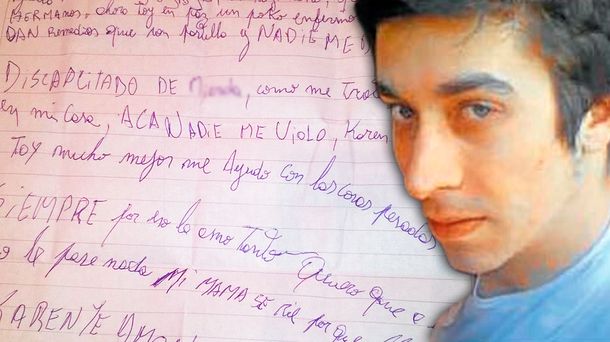 HERMANOS, ahora Toy en paz un poko enfermo
DAN Remedios que son pastillo y NADIE ME D
DISCAPLITADO DE como me Trat
en mi Casa, ACA NADIE ME VIOLO, Karen
Toy mucho mejor me Ayudo con las cosas pesadas
SIEMPRE por eso la amo Tanto Quiero que a
le pase nada Mi MAMA SE RIE por que
KAREN TE